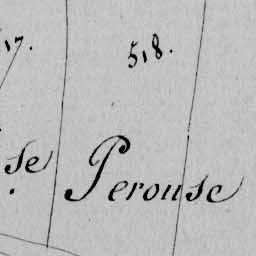 17. 518.
se Perouse